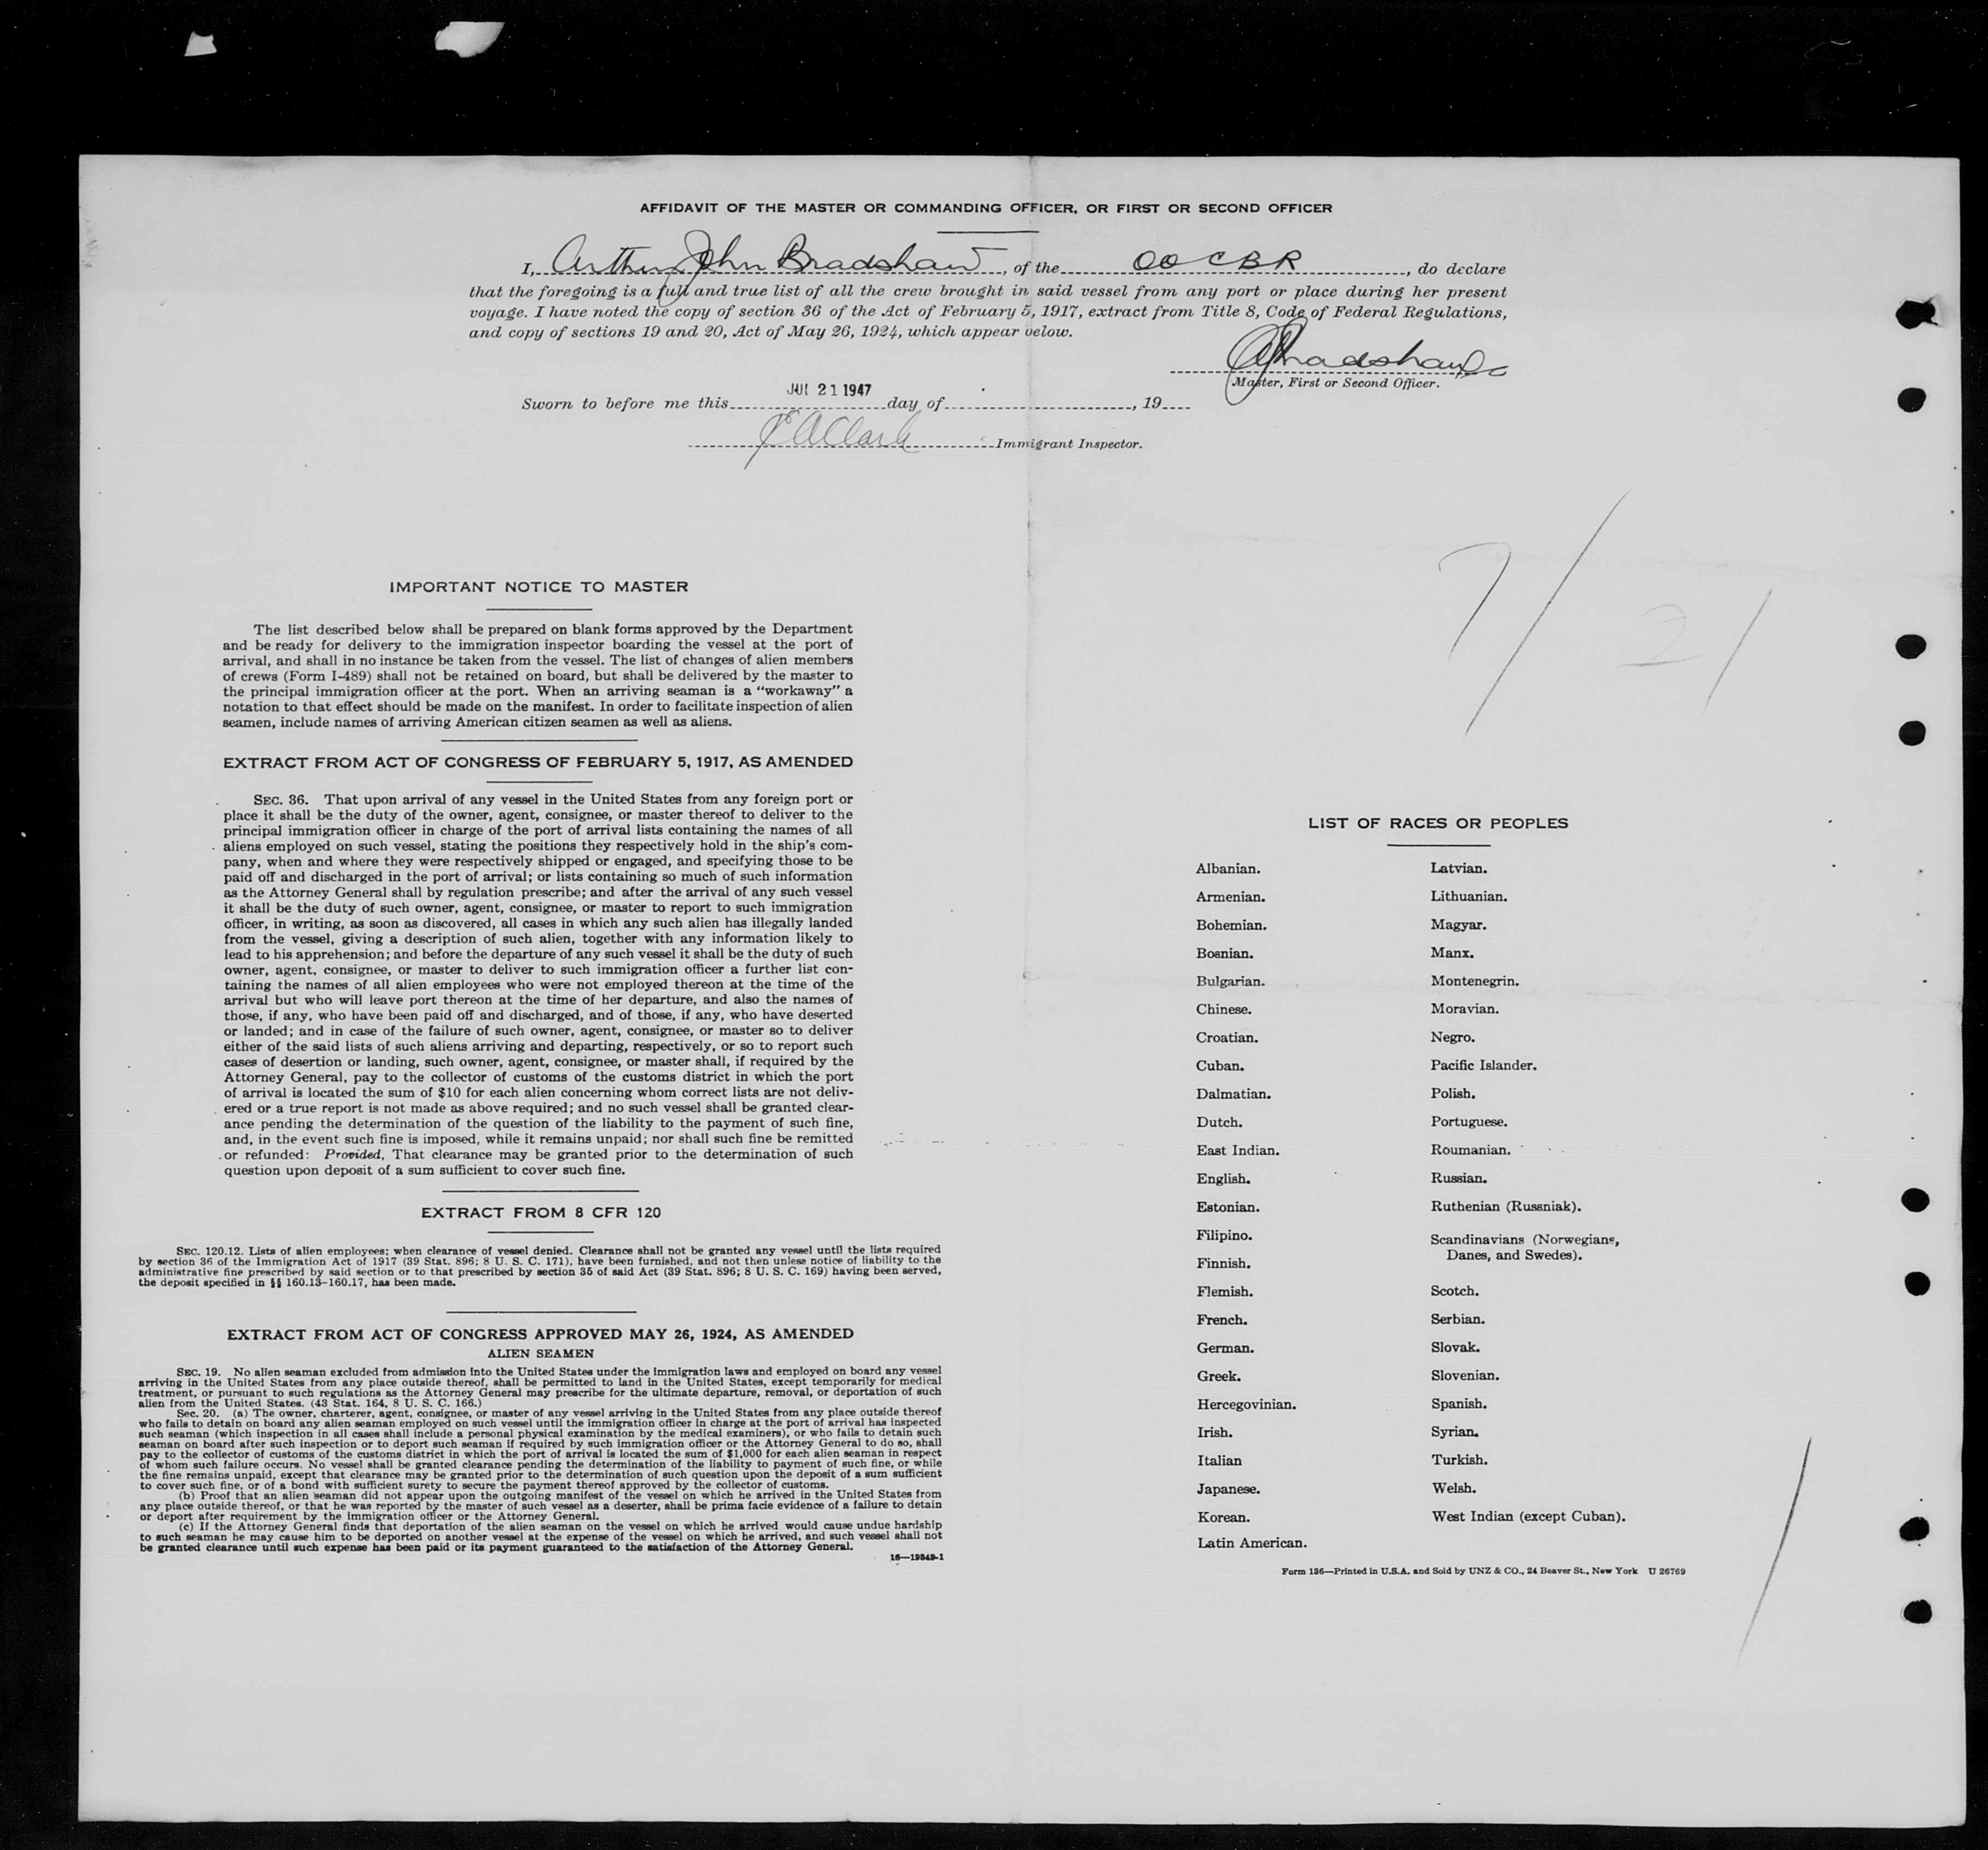 AFFIDAVIT OF THE MASTER OR COMMANDING OFFICER, OR FIRST OR SECOND OFFICER
I, Arthur John Bradshaw, of the OOCBR, do declare
that the foregoing is a full and true list of all the crew brought in said vessel from any port or place during her present
voyage. I have noted the copy of section 36 of the Act of February 5, 1917, extract from Title 8, Code of Federal Regulations,
and copy of sections 19 and 20, Act of May 26, 1924, which appear below.
AJBradshaw
Master, First or Second Officer.
JUL 21 1947
Sworn to before me this day of , 19
E A Clark Immigrant Inspector.
7/21/
IMPORTANT NOTICE TO MASTER
The list described below shall be prepared on blank forms approved by the Department
and be ready for delivery to the immigration inspector boarding the vessel at the port of
arrival, and shall in no instance be taken from the vessel. The list of changes of alien members
of crews (Form I-489) shall not be retained on board, but shall be delivered by the master to
the principal immigration officer at the port. When an arriving seaman is a “workaway” a
notation to that effect should be made on the manifest. In order to facilitate inspection of alien
seamen, include names of arriving American citizen seamen as well as aliens.
EXTRACT FROM ACT OF CONGRESS OF FEBRUARY 5, 1917, AS AMENDED
SEC. 36. That upon arrival of any vessel in the United States from any foreign port or
place it shall be the duty of the owner, agent, consignee, or master thereof to deliver to the
principal immigration officer in charge of the port of arrival lists containing the names of all
aliens employed on such vessel, stating the positions they respectively hold in the ship's com-
pany, when and where they were respectively shipped or engaged, and specifying those to be
paid off and discharged in the port of arrival; or lists containing so much of such information
as the Attorney General shall by regulation prescribe; and after the arrival of any such vessel
it shall be the duty of such owner, agent, consignee, or master to report to such immigration
officer, in writing, as soon as discovered, all cases in which any such alien has illegally landed
from the vessel, giving a description of such alien, together with any information likely to
lead to his apprehension; and before the departure of any such vessel it shall be the duty of such
owner, agent, consignee, or master to deliver to such immigration officer a further list con-
taining the names of all alien employees who were not employed thereon at the time of the
arrival but who will leave port thereon at the time of her departure, and also the names of
those, if any, who have been paid off and discharged, and of those, if any, who have deserted
or landed; and in case of the failure of such owner, agent, consignee, or master so to deliver
either of the said lists of such aliens arriving and departing, respectively, or so to report such
cases of desertion or landing, such owner, agent, consignee, or master shall, if required by the
Attorney General, pay to the collector of customs of the customs district in which the port
of arrival is located the sum of $10 for each alien concerning whom correct lists are not deliv-
ered or a true report is not made as above required; and no such vessel shall be granted clear-
ance pending the determination of the question of the liability to the payment of such fine,
and, in the event such fine is imposed, while it remains unpaid; nor shall such fine be remitted
or refunded: Provided, That clearance may be granted prior to the determination of such
question upon deposit of a sum sufficient to cover such fine.
EXTRACT FROM 8 CFR 120
SEC. 120.12. Lists of alien employees; when clearance of vessel denied. Clearance shall not be granted any vessel until the lists required
by section 36 of the Immigration Act of 1917 (39 Stat. 896; 8 U. S. C. 171), have been furnished, and not then unless notice of liability to the
administrative fine prescribed by said section or to that prescribed by section 35 of said Act (39 Stat. 896; 8 U. S. C. 169) having been served,
the deposit specified in §§ 160.13–160.17, has been made.
EXTRACT FROM ACT OF CONGRESS APPROVED MAY 26, 1924, AS AMENDED
ALIEN SEAMEN
SEC. 19. No alien seaman excluded from admission into the United States under the immigration laws and employed on board any vessel
arriving in the United States from any place outside thereof, shall be permitted to land in the United States, except temporarily for medical
treatment, or pursuant to such regulations as the Attorney General may prescribe for the ultimate departure, removal, or deportation of such
alien from the United States. (43 Stat. 164, 8 U. S. C. 166.)
Sec. 20. (a) The owner, charterer, agent, consignee, or master of any vessel arriving in the United States from any place outside thereof
who fails to detain on board any alien seaman employed on such vessel until the immigration officer in charge at the port of arrival has inspected
such seaman (which inspection in all cases shall include a personal physical examination by the medical examiners), or who fails to detain such
seaman on board after such inspection or to deport such seaman if required by such immigration officer or the Attorney General to do so, shall
pay to the collector of customs of the customs district in which the port of arrival is located the sum of $1,000 for each alien seaman in respect
of whom such failure occurs. No vessel shall be granted clearance pending the determination of the liability to payment of such fine, or while
the fine remains unpaid, except that clearance may be granted prior to the determination of such question upon the deposit of a sum sufficient
to cover such fine, or of a bond with sufficient surety to secure the payment thereof approved by the collector of customs.
(b) Proof that an alien seaman did not appear upon the outgoing manifest of the vessel on which he arrived in the United States from
any place outside thereof, or that he was reported by the master of such vessel as a deserter, shall be prima facie evidence of a failure to detain
or deport after requirement by the immigration officer or the Attorney General.
(c) If the Attorney General finds that deportation of the alien seaman on the vessel on which he arrived would cause undue hardship
to such seaman he may cause him to be deported on another vessel at the expense of the vessel on which he arrived, and such vessel shall not
be granted clearance until such expense has been paid or its payment guaranteed to the satisfaction of the Attorney General.
16—19849-1
LIST OF RACES OR PEOPLES
Albanian.
Armenian.
Bohemian.
Bosnian.
Bulgarian.
Chinese.
Croatian.
Cuban.
Dalmatian.
Dutch.
East Indian.
English.
Estonian.
Filipino.
Finnish.
Flemish.
French.
German.
Greek.
Hercegovinian.
Irish.
Italian
Japanese.
Korean.
Latin American.
Latvian.
Lithuanian.
Magyar.
Manx.
Montenegrin.
Moravian.
Negro.
Pacific Islander.
Polish.
Portuguese.
Roumanian.
Russian.
Ruthenian (Russniak).
Scandinavians (Norwegians,
Danes, and Swedes).
Scotch.
Serbian.
Slovak.
Slovenian.
Spanish.
Syrian.
Turkish.
Welsh.
West Indian (except Cuban).
Form 136—Printed in U.S.A. and Sold by UNZ & CO., 24 Beaver St., New York U 26769